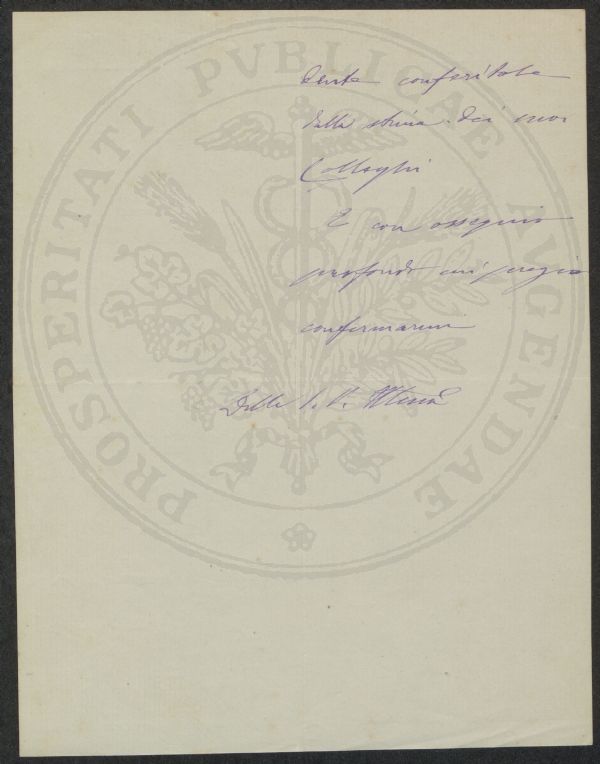 PROSPERITATI PVBLICAE AVGENDAE
dente conferitole
dalla stima dei suoi
Colleghi
E con ossequio
profondo mi pregio
confermarmi
Della S. V. Ill.ma